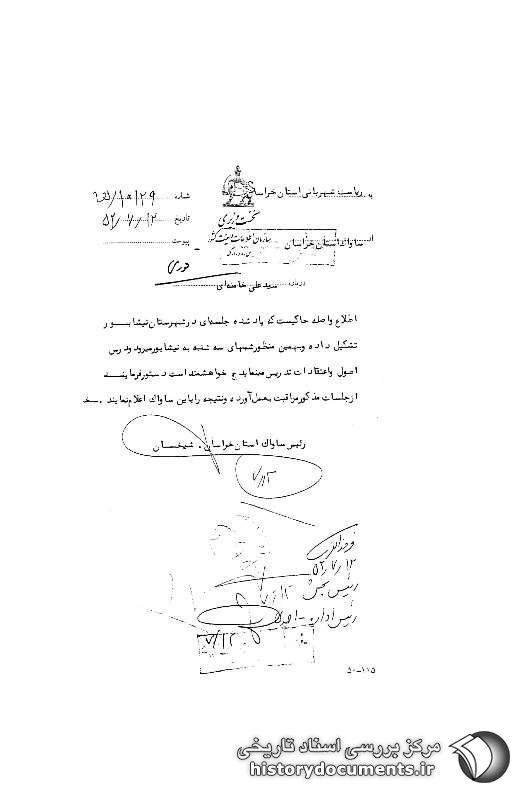 به ریاست شهربانی استان خراسان
شماره ۱۰۱۲۹/
نخست وزیری
تاریخ ۵۲/۷/۱۲
سازمان اطلاعات و امنیت کشور
از ساواک استان خراسان
پیوست
درباره سید علی خامنه‌ای
فوری
اطلاع واصله حاکیست که یاد شده جلسه‌ای در شهرستان نیشابور
تشکیل داده و بهمین منظور شبهای سه شنبه به نیشابور میرود و درس
اصول و اعتقادات تدریس مینماید خواهشمند است دستور فرمایند
از جلسات مذکور مراقبت بعمل آورده و نتیجه را باین ساواک اعلام نمایند. سخ
رئیس ساواک استان خراسان. شیخان
۷/۱۲
۵۲/۷/۱۲
رئیس بخش ۷/۱۲
رئیس اداره
۷/۱۲
۵۰-۱۱۵
مرکز بررسی اسناد تاریخی
historydocuments.ir